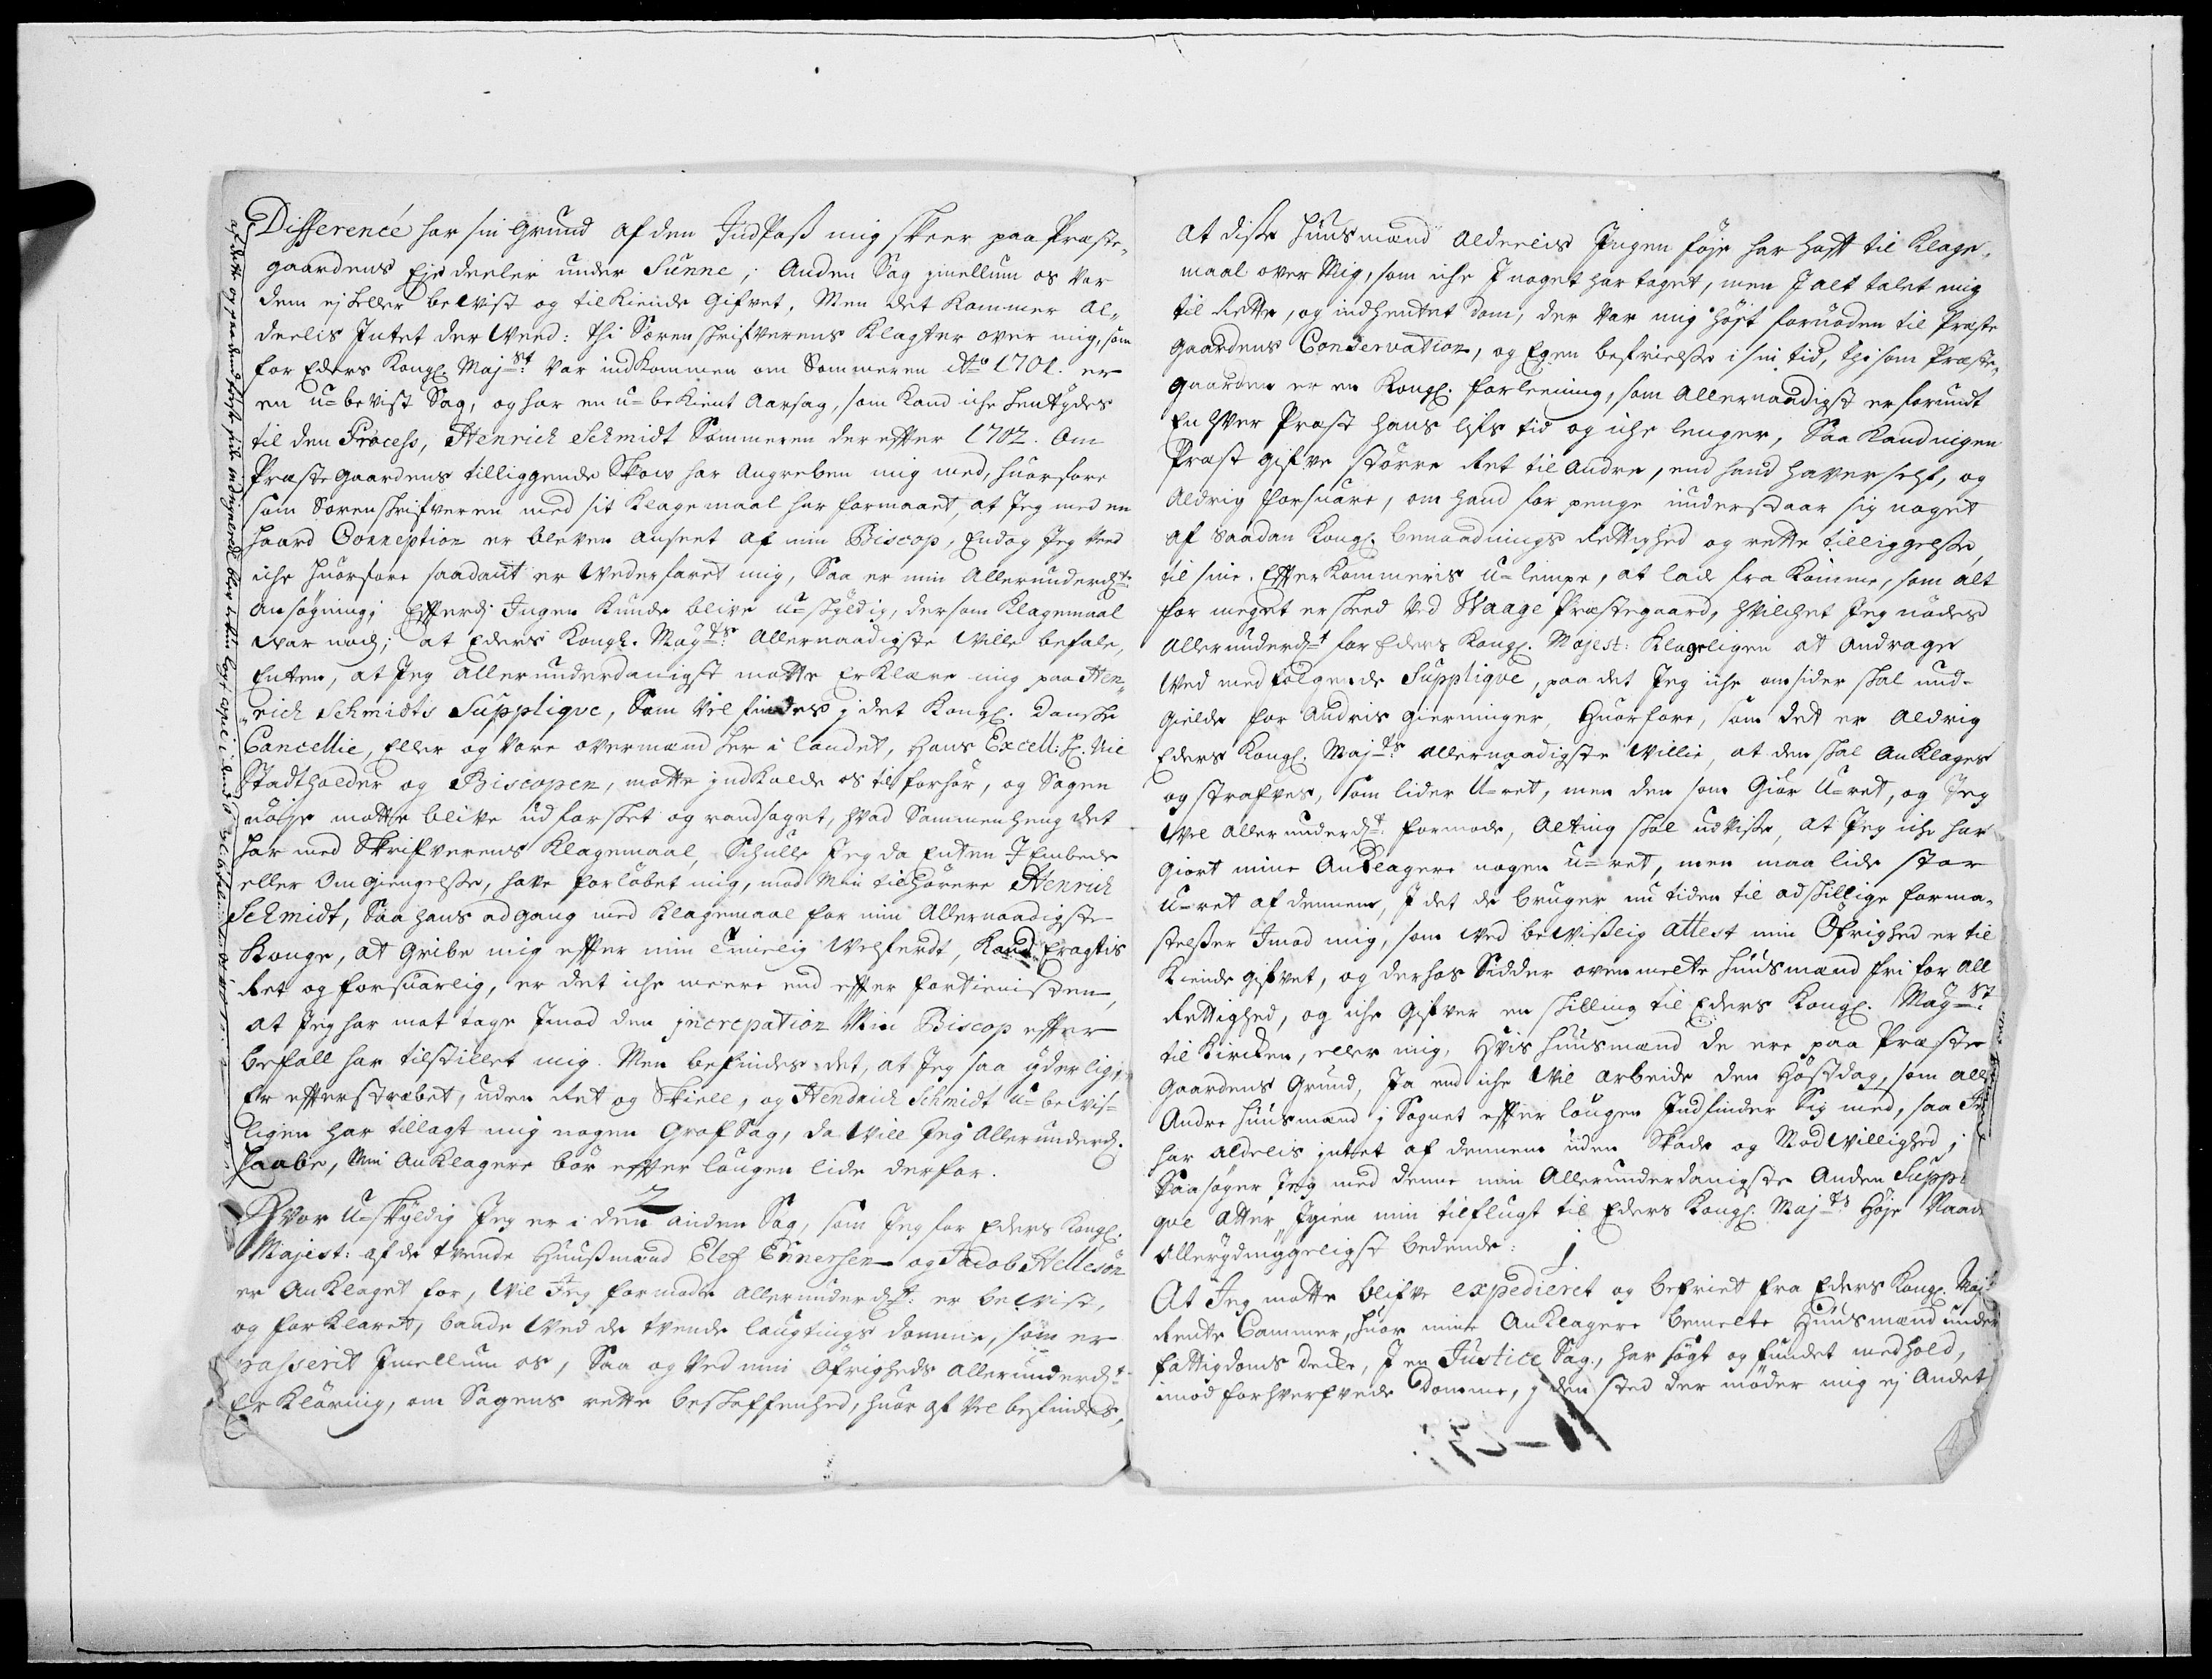 Differencé har sin Grund af den IndPass mig skeer paa Præste,
gaardens Eje deeler under Sunne; Anden Sag jmellum os var
dem ej heller bevist og tilkiende Gifvet. Men det kommer al,
deelis Intet der Weed: thi Sorenskrifverens Klagter over mig, som
for Eders Kongl. Maj.st var indkommen om Sommeren Ao 1701. er
en u-bevist Sag, og har en u-bekient Aarsag, som kand iche hentydes
til den Process, Henrich Schmidt Sommeren der effter 1702. Om
Præstegaardens tilliggende Skow har Angreben mig med, huorfore
som Sorenskrifveren med sit Klagemaal har formaaet, at Jeg med en
haard Correption er bleven anseet af min Biscop, Endog Jeg veed
iche huorfore saadant er Wederfaret mig, Saa er min Allerunderd:te
ansøgning; Efferdj Ingen kunde blive u-skyldig, dersom Klagemaal
war nock; at Eders Kongl. May:ts Allernaadigste Wille befale,
Enten, at Jeg allerunderdanigst motte Erklære mig paa Hen,,
,,rich Schmidts Supplique, Som vil findes j det Kongl. Danske
Cancellie, Eller og vore overmænd her i landet, Hans Excell: H. Vice
Stadtholder og Biscopen, motte jndkalde os til forhør, og Sagen
nøje motte blive udforsket og randsaget, hvad Sammenheng det
har med Skrifverens Klagemaal, Schulle Jeg da Enten J Embede
eller Omgiengelsse, have forløbet mig, mod Min tilhørere Henrich
Schmidt, Saa hans adgang med Klagemaal for min Allernaadigste
Konge, at Gribe mig effter min timelig Welferdt, Kand Eragtis
Ret og forsuarlig, er det iche meere end effter fortienisten,
at Jeg har mat tage Jmod den jncrepation Min Biscop effter
befall har tilstillet mig. Men befindes det, at Jeg saa yderlig,
Er effterstræbet, uden Ret og Skiell, og Hendrich Schmidt u-bevis-
ligen har tillagt mig nogen Grof Sag, da Will Jeg Allerunderd.
haabe, Min Anklagere bør effter lougen lide derfor.
2
Hvor u-skyldig Jeg er i den anden Sag, som Jeg for Eders Kongl.
Majest: af de tvende Huusmænd Elef Ennersen og Jacob Helleson
er Anklaget for, Wil Jeg formode allerunderd:t er bevist,
og forklaret, baade Wed de tvende laugtings domme, som er
passerit Jmellum os, Saa og Ved min Öfrigheds allerunderd:te
Erklæring, om Sagens rette beskaffenhed, huor af vel befindes,
at disse huusmænd aldeelis Jngen føje har hafft til Klage,
maal over Mig, som iche J noget har taget, men J alt talet mig
til Rette, og indhentet dom, der var mig høyst fornøden til Præste
gaardens Conservation, og Egen befrielsse i sin tid, thj som Præste,
gaarden er en Kongl. forleening, som Allernaadigst er forundt
En hver Præst hans lifs tid og iche lenger, Saa kand ingen
Præst gifve større Ret til Andre, end hand haver self, og
Aldrig forsuare, om hand for penge understaar sig noget
af saadan Kongl. benaadnings Rettighed og rette tilliggelsse
til sine Effterkommeris u-lempe, at lade fra komme, som alt
for meget er skeed ved Waage Præstegaard, hvilchet Jeg nødes
Allerunderd:t for Eders Kongl. Majest: Klageligen at Andrage
Wed medfølgende Supplique, paa det Jeg iche omsider skal und-
gielde for Andris gierninger, Huorfore, som det er Aldrig
Eders Kongl. Maj:ts allernaadigste Willie, at den skal Anklages
og straffes, som lider U-ret, men den som Giør U-ret, og Jeg
Wil allerunderd:t formode, Alting skal udvise, at Jeg iche har
Giort mine Anklagere nogen U-ret, men maa lide stor
u-ret af dennem, J det de bruger nu tiden til adskillige forma,
stelsser Jmod mig, som ved bevisslig attest min Öfrighed er til
kiende gifvet, og derhos Sidder ovenmelte huusmænd fri for all
Rettighed, og iche Gifver en skilling til Eders Kongl. May:st
til Kircken, eller mig, Hvis huusmænd de ere paa Præste
Gaardens Grund, Ja end iche Wil arbeide den Høstdag, som alle
Andre huusmænd j Sognet effter lougen Indfinder Sig med, saa Je
har aldelis jntet af dennem uden Skade og Modvillighed;
Saa søger Jeg med denne min Allerunderdanigste Anden Suppl
que Atter Igien min tilflugt til Eders Kongl. Maj:ts Høje Naad
Allerydmyggeligst bedende:
1
At Jeg motte blifve expedieret og befriet fra Eders Kongl. Maj:ts
Rente Cammer, huor mine Anklagere bemelte Huusmænd under
fattigdoms decke, J en Justice Sag, har søgt og fundet medhold,
imod forhverfvede Domme, j den sted der møder mig ej Andet